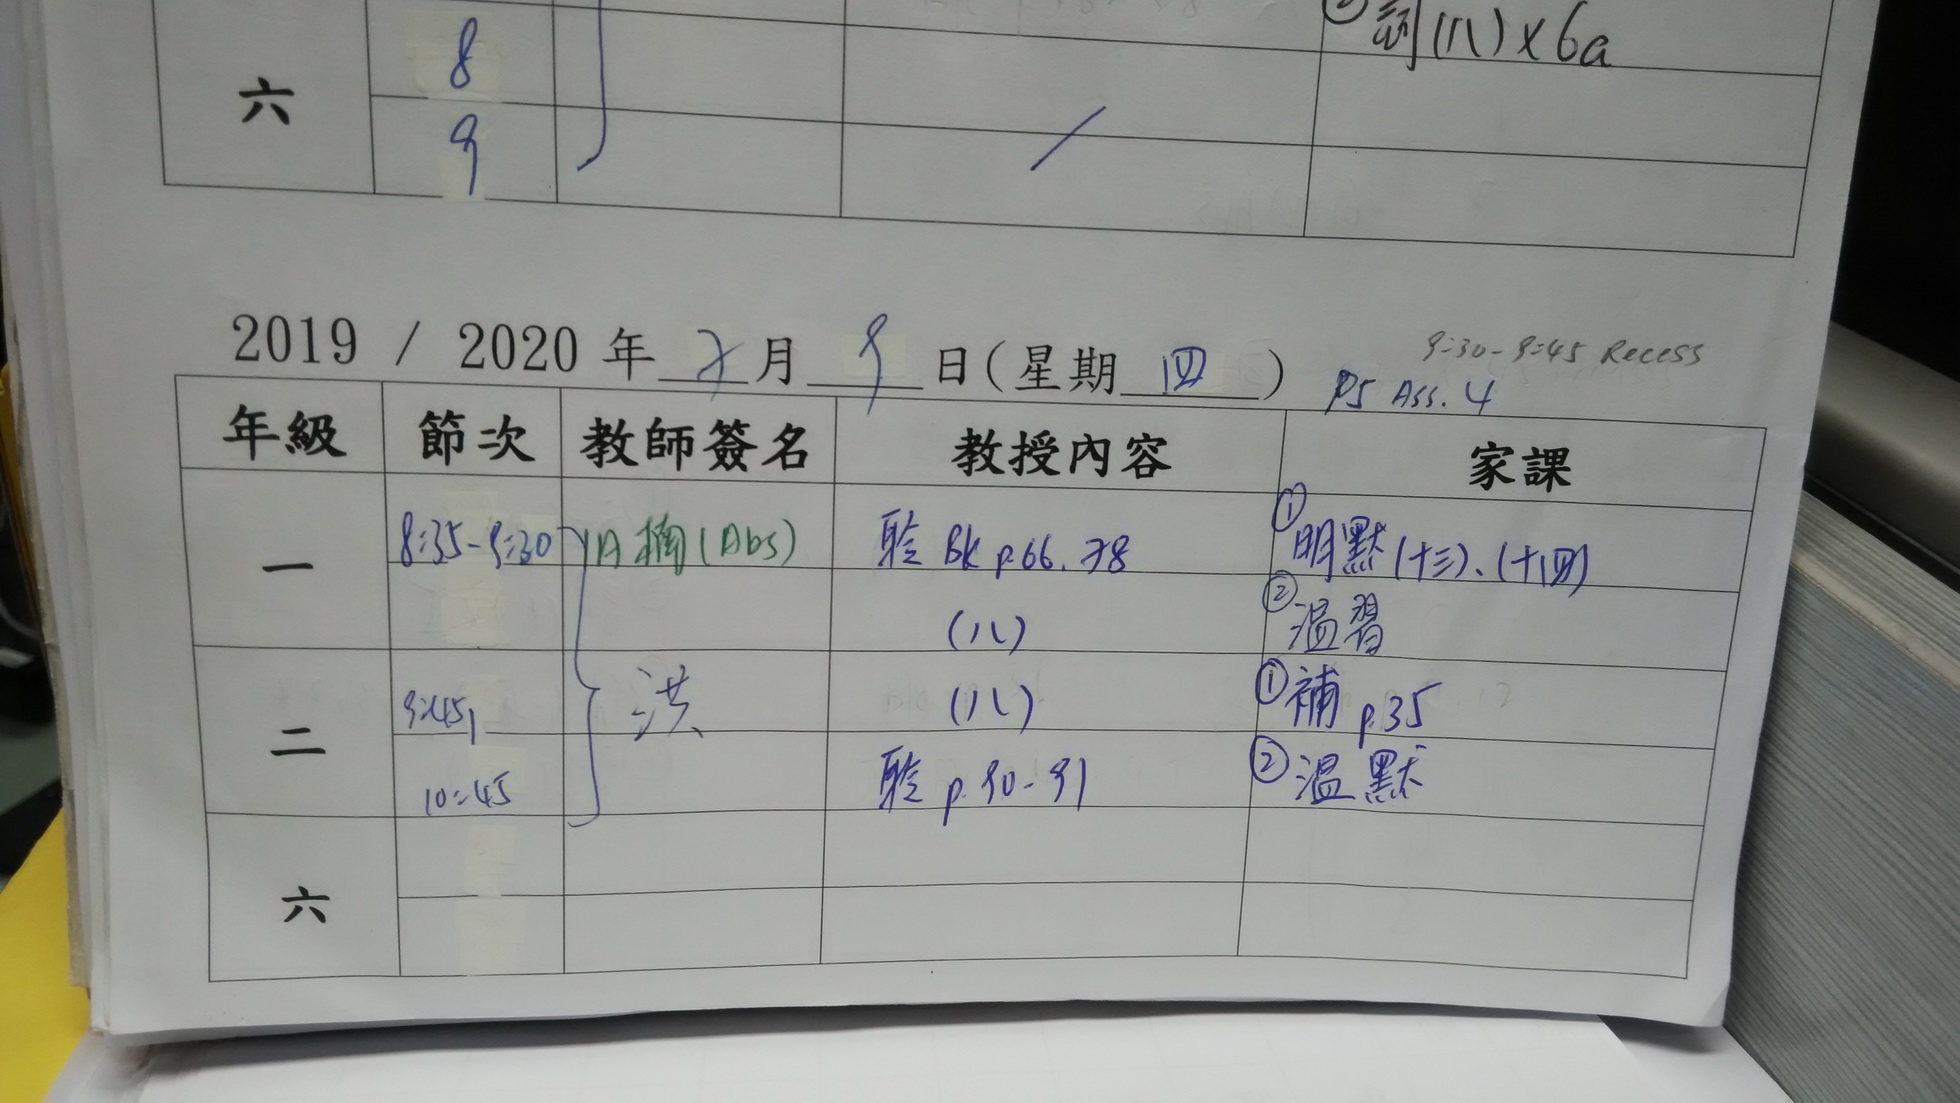 ② 詞(八)x6a
六
8
9
2019 / 2020 年 7 月 9 日(星期 四 )
9:30-9:45 Recess
P5 Ass. 4
年級 節次 教師簽名 教授內容 家課
一 8:35-9:30 1A (Abs) 聆 Bk p.66. 78 ①明默(十三)、(十四)
(八) ②溫習
二 9:45 洪 (八) ①補 p.35
10:45 聆 p.90-91 ②溫默
六